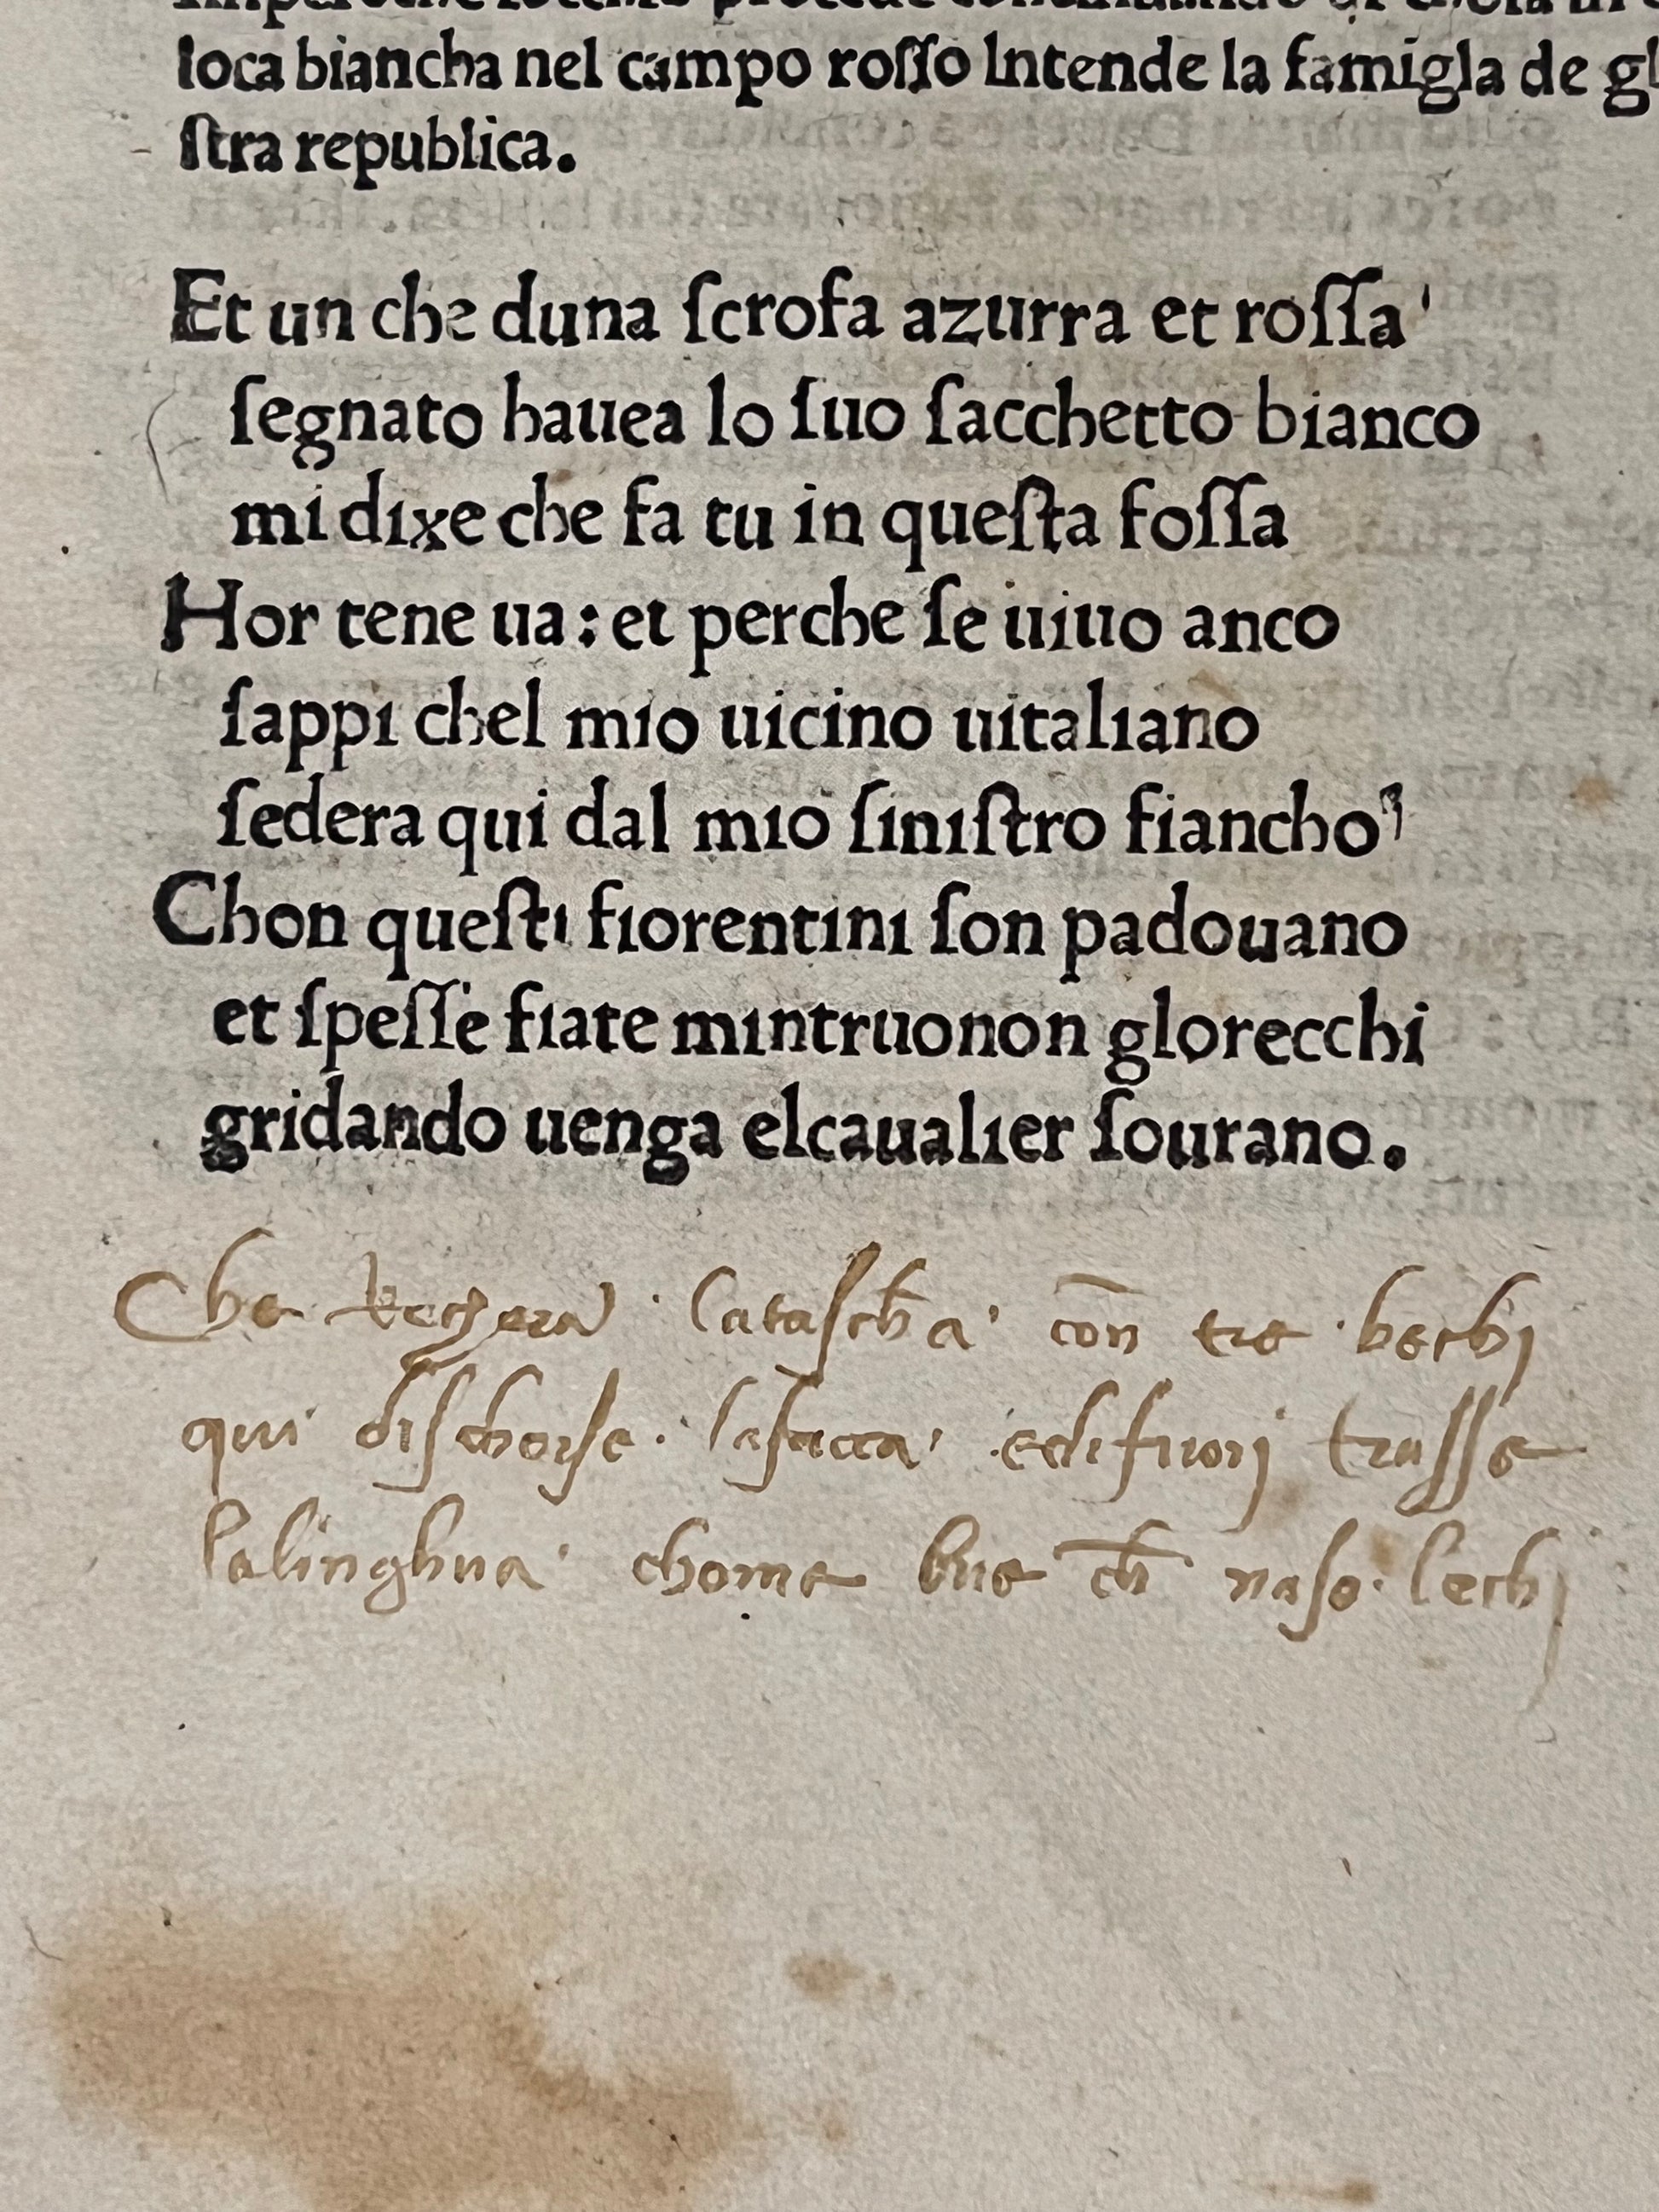 loca biancha nel campo roſſo Intende la famigla de gl
ſtra republica.
Et un che duna ſcrofa azurra et roſſa
ſegnato hauea lo ſuo ſacchetto bianco
mi dixe che fa tu in queſta foſſa
Hor tene ua: et perche ſe uiuo anco
ſappi chel mio uicino uitaliano
ſedera qui dal mio ſiniſtro fiancho
Chon queſti fiorentini ſon padouano
et ſpeſſe fiate mintruonon glorecchi
gridando uenga elcaualier ſourano.
Che rechera lataſcha con tre bechj
qui diſchorſe laſacca edifuorj traſſe
lalinghua chome bue ch naſo lechj